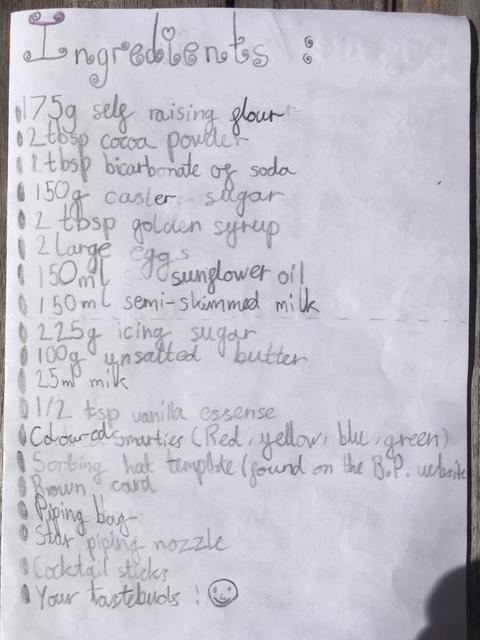 Ingredients :
175g self raising flour
2 tbsp cocoa powder
1 tbsp bicarbonate of soda
150g caster sugar
2 tbsp golden syrup
2 Large eggs
150ml sunflower oil
150ml semi-skimmed milk
225g icing sugar
100g unsalted butter
25ml milk
1/2 tsp vanilla essense
Coloured Smarties (Red, yellow, blue, green)
Sorting hat template (found on the B.P. website
Brown card
Piping bag
Star piping nozzle
Cocktail sticks
Your tastebuds !